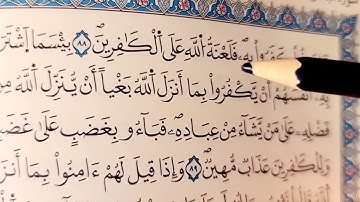 كَفَرُوا۟ بِهِۦ ۚ فَلَعْنَةُ ٱللَّهِ عَلَى ٱلْكَٰفِرِينَ ٨٩ بِئْسَمَا ٱشْتَرَ
بِهِۦٓ أَنفُسَهُمْ أَن يَكْفُرُوا۟ بِمَآ أَنزَلَ ٱللَّهُ بَغْيًا أَن يُنَزِّلَ ٱللَّهُ مِ
فَضْلِهِۦ عَلَىٰ مَن يَشَآءُ مِنْ عِبَادِهِۦ ۖ فَبَآءُو بِغَضَبٍ عَلَىٰ غَضَ
وَلِلْكَٰفِرِينَ عَذَابٌ مُّهِينٌ ٩٠ وَإِذَا قِيلَ لَهُمْ ءَامِنُوا۟ بِمَآ أَنزَ